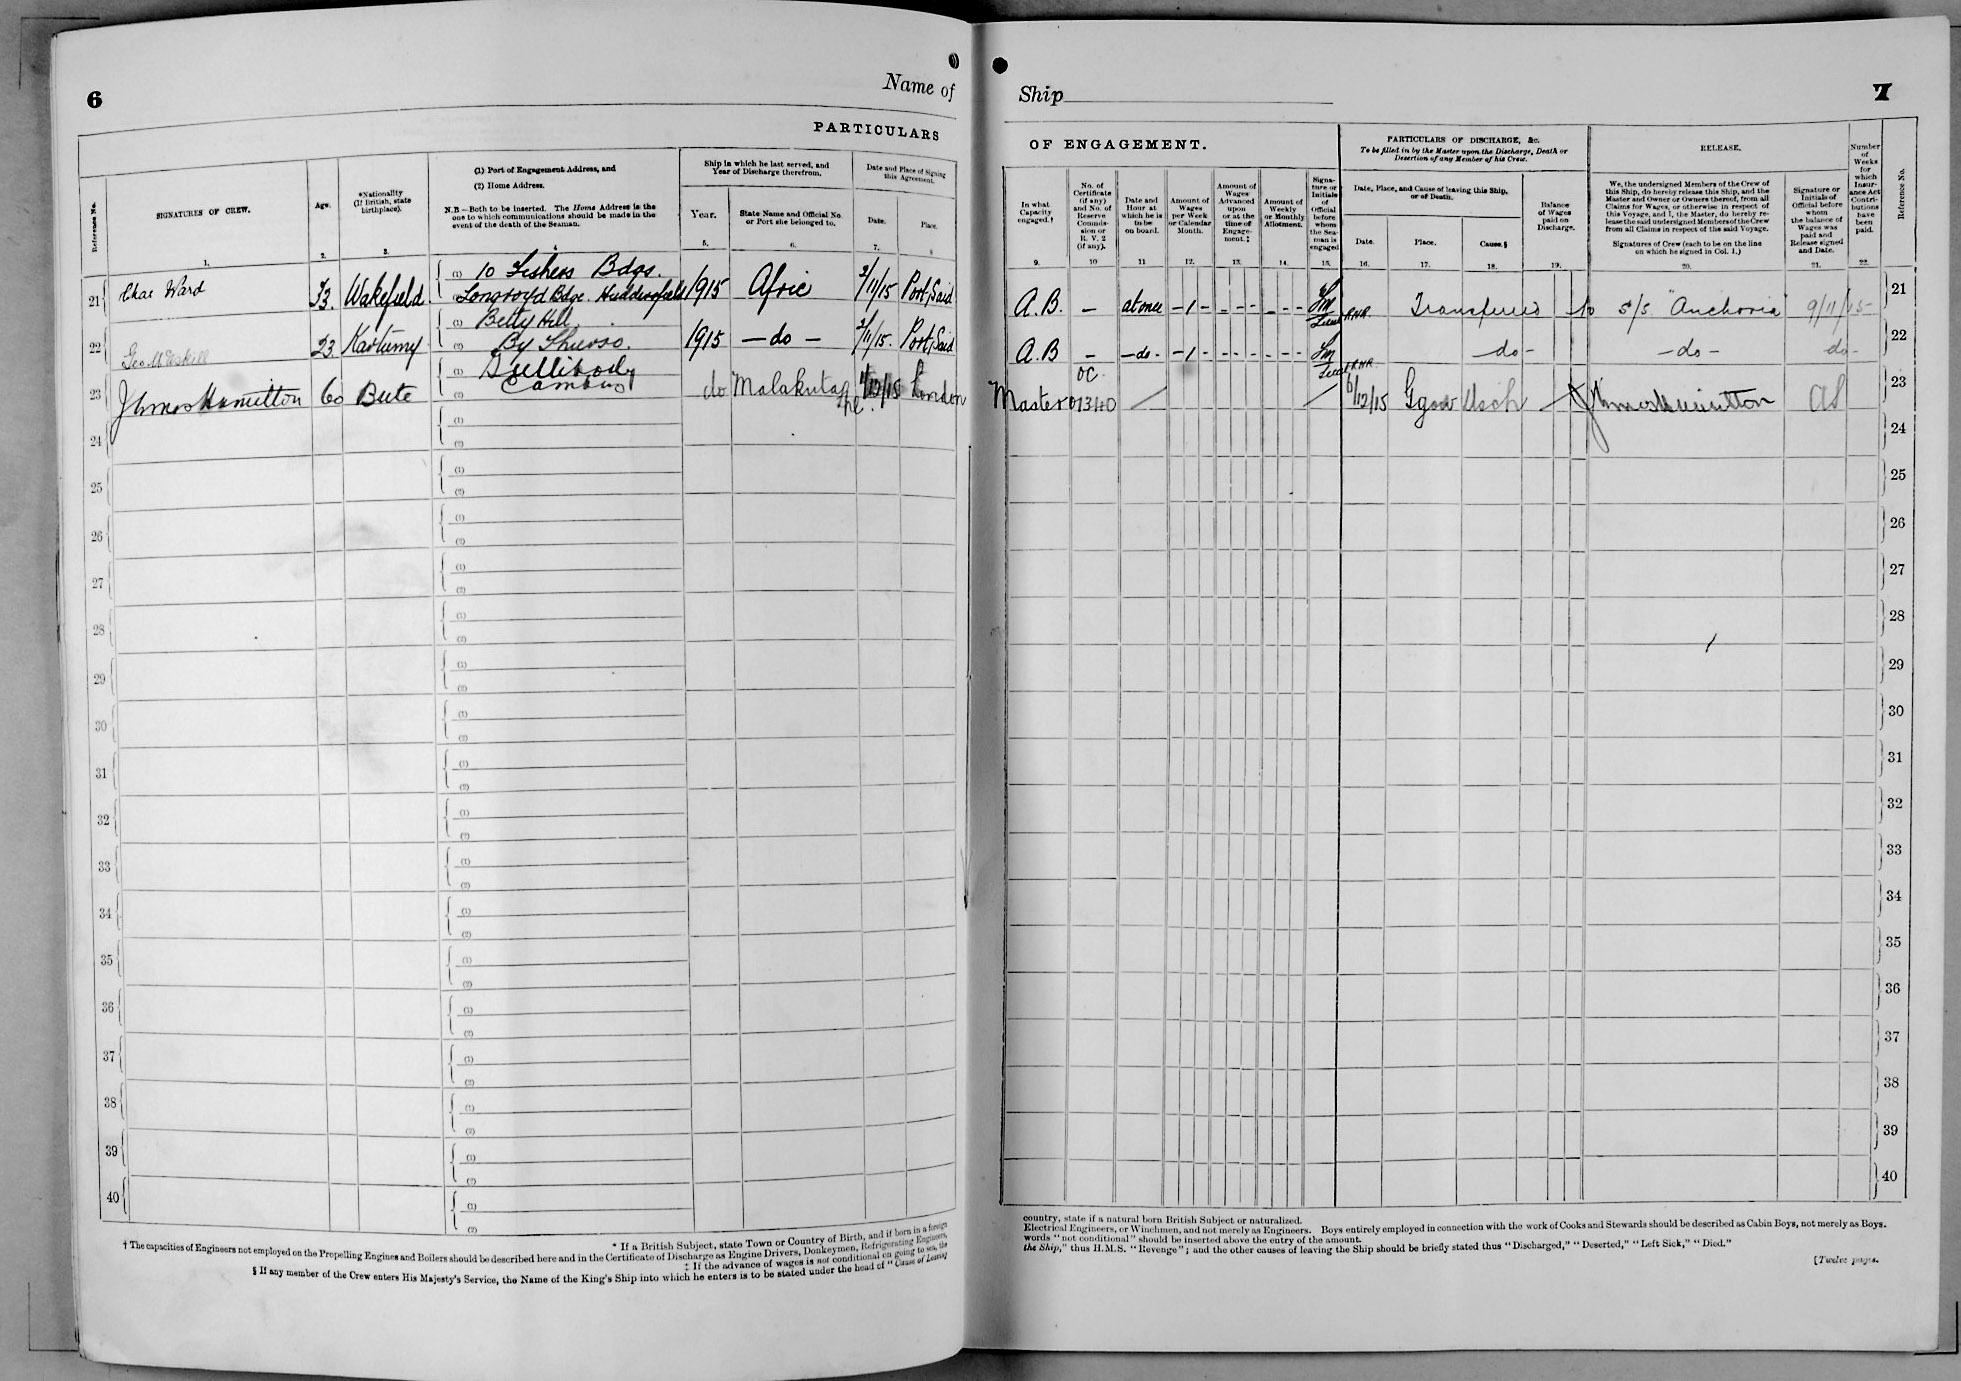 6
Name of
PARTICULARS
Reference No.
SIGNATURES OF CREW.
Age.
*Nationality
(If British, state
birthplace).
(1) Port of Engagement Address, and
(2) Home Address.
N.B—Both to be inserted. The Home Address is the
one to which communications should be made in the
event of the death of the Seaman.
Ship in which he last served, and
Year of Discharge therefrom.
Year.
State Name and Official No.
or Port she belonged to.
Date and Place of Signing
this Agreement.
Date.
Place.
1. 2. 3. 4 5. 6. 7. 8
21 Chas Ward 33. Wakefield (1) 10 Fishers Bdgs. 1915 Afric 2/11/15 Port Said
(2) Longroyd Bdge. Huddersfield
22 Geo 23 (1) Betty Hill. 1915 — do — 2/11/15. Port Said
(2) By Thurso.
23 Hamilton 60 Bute (1) Tullibody do Malakuta /12/15 London
(2) Cambus Lpl.
24 (1)
(2)
25 (1)
(2)
26 (1)
(2)
27 (1)
(2)
28 (1)
(2)
29 (1)
(2)
30 (1)
(2)
31 (1)
(2)
32 (1)
(2)
33 (1)
(2)
34 (1)
(2)
35 (1)
(2)
36 (1)
(2)
37 (1)
(2)
38 (1)
(2)
39 (1)
(2)
40 (1)
(2)
* If a British Subject, state Town or Country of Birth, and if born in a foreign
† The capacities of Engineers not employed on the Propelling Engines and Boilers should be described here and in the Certificate of Discharge as Engine Drivers, Donkeymen, Refrigerating Engineers,
‡ If the advance of wages is not conditional on going to sea, the
§ If any member of the Crew enters His Majesty's Service, the Name of the King's Ship into which he enters is to be stated under the head of "Cause of Leaving
Ship
7
OF ENGAGEMENT.
PARTICULARS OF DISCHARGE, &c.
To be filled in by the Master upon the Discharge, Death or
Desertion of any Member of his Crew.
RELEASE.
In what
Capacity
engaged.†
No. of
Certificate
(if any)
and No. of
Reserve
Commis-
sion or
R. V. 2
(if any).
Date and
Hour at
which he is
to be
on board.
Amount of
Wages
per Week
or Calendar
Month.
Amount of
Wages
Advanced
upon
or at the
time of
Engage-
ment.‡
Amount of
Weekly
or Monthly
Allotment.
Signa-
ture or
Initials
of
Official
before
whom
the Sea-
man is
engaged
Date, Place, and Cause of leaving this Ship,
or of Death.
Date.
Place.
Cause.§
Balance
of Wages
paid on
Discharge.
We, the undersigned Members of the Crew of
this Ship, do hereby release this Ship, and the
Master and Owner or Owners thereof, from all
Claims for Wages, or otherwise in respect of
this Voyage, and I, the Master, do hereby re-
lease the said undersigned Members of the Crew
from all Claims in respect of the said Voyage.
Signatures of Crew (each to be on the line
on which he signed in Col. 1.)
Signature or
Initials of
Official before
whom
the balance of
Wages was
paid and
Release signed
and Date.
Number
of
Weeks
for
which
Insur-
ance Act
Contri-
butions
have
been
paid.
Reference No.
9. 10 11 12. 13. 14. 15. 16. 17. 18. 19. 20. 21. 22.
A.B. — at once - 1 - Lieut RNR. Transferred to S/S. "Anchoria" 9/11/15 21
A.B — - do - - 1 - Lieut RNR. - do - - do - do - 22
Master OC 01340 6/12/15 Ggow Disch Hamilton AS 23
24
25
26
27
28
29
30
31
32
33
34
35
36
37
38
39
40
country, state if a natural born British Subject or naturalized.
Electrical Engineers, or Winchmen, and not merely as Engineers. Boys entirely employed in connection with the work of Cooks and Stewards should be described as Cabin Boys, not merely as Boys.
words "not conditional" should be inserted above the entry of the amount.
the Ship," thus H.M.S. "Revenge"; and the other causes of leaving the Ship should be briefly stated thus "Discharged," "Deserted," "Left Sick," "Died."
[Twelve pages.